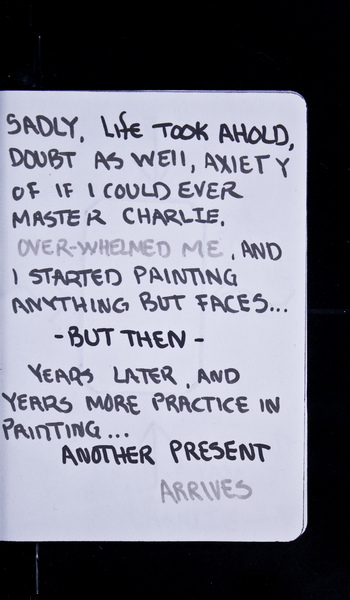 SADLY, LifE TOOK AHOLD,
DOUBT AS WEll, AXIETY
OF IF I COULD EVER
MASTER CHARLIE.
OVER-WHELMED ME, AND
I STARTED PAINTING
ANYTHING BUT FACES...
-BUT THEN-
YEARS LATER, AND
YEARS MORE PRACTICE IN
PAINTING...
ANOTHER PRESENT
ARRIVES